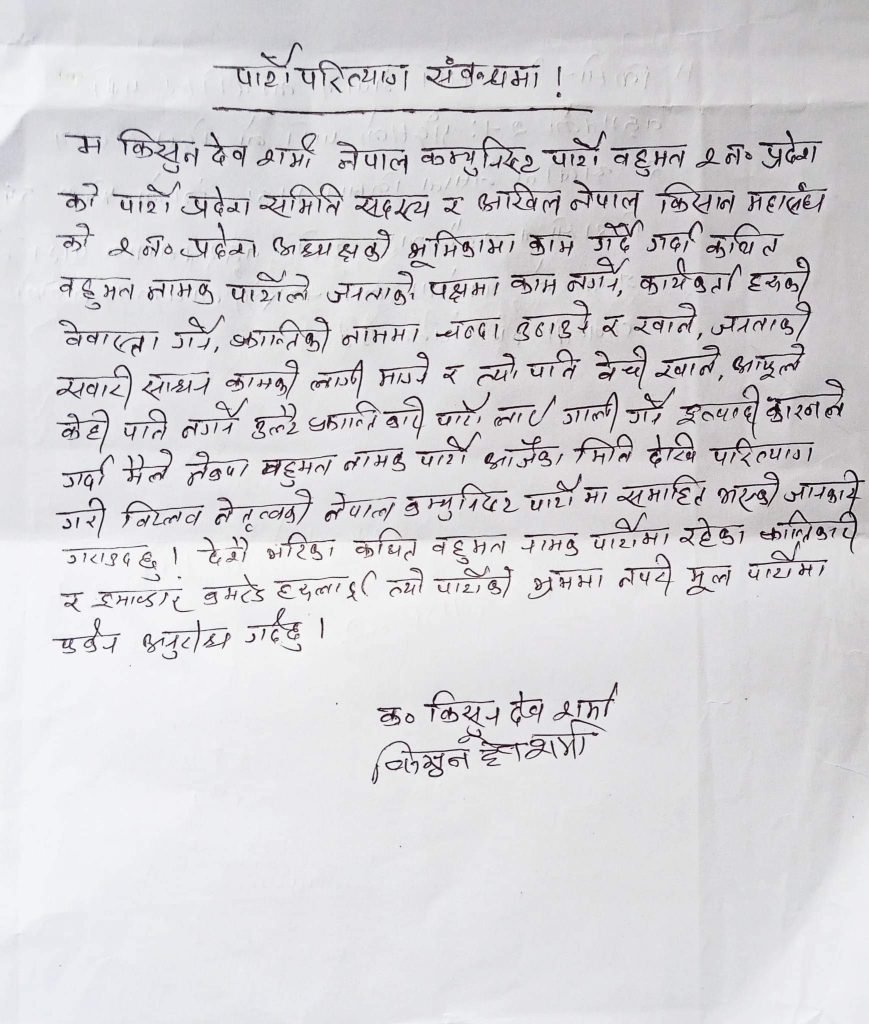 पार्टी परित्याग संवन्धमा !
म किसुन देव शर्मा नेपाल कम्युनिष्ट पार्टी वहुमत २ न० प्रदेश
को पार्टी प्रदेश समिति सदस्य र अखिल नेपाल किसान महासंघ
को २ न० प्रदेश अध्यक्षको भूमिकामा काम गर्दै गर्दा कथित
वहुमत नामक पार्टीले जनताको पक्षमा काम नगर्ने, कार्यकर्ता हरुको
वेवास्ता गर्ने, क्रान्तिको नाममा चन्दा उठाउने र खाने, जनताको
सवारी साधन कामको लागी माग्ने र त्यो पनि वेची खाने, आफूले
केही पनि नगर्ने उल्टै क्रान्तिकारी पार्टी लाई गाली गर्ने इत्यादी कारनले
गर्दा मैले नेकपा वहुमत नामक पार्टी आजैका मिति देखि परित्याग
गरी विप्लव नेतृत्वको नेपाल कम्युनिष्ट पार्टी मा समाहित भएको जानकारी
गराउदछु । देशै भरिका कथित वहुमत नामक पार्टीमा रहेका क्रान्तिकारी
र इमान्दार कमरेड हरुलाई त्यो पार्टीको भ्रममा नपरी मूल पार्टीमा
फर्कन अनुरोध गर्दछु ।
क० किसुन देव शर्मा
किसुन देव शर्मा